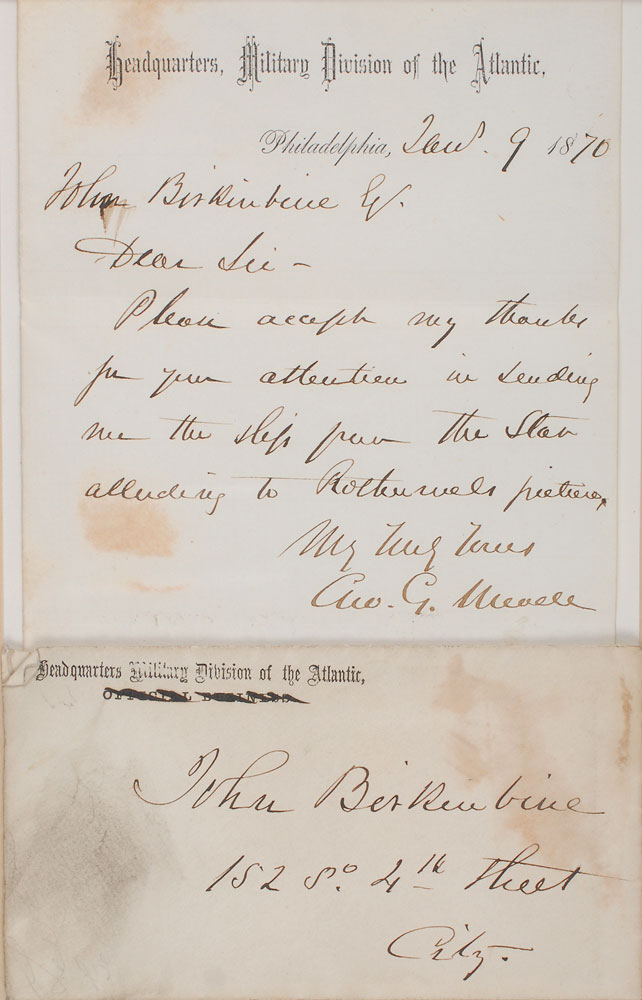 Headquarters, Military Division of the Atlantic,
Philadelphia, Jany. 9 1870
John Birkinbine Esq.
Dear Sir –
Please accept my thanks
for your attention in sending
me the slip from the Star
alluding to Rothermels picture,
Very Truly Yours
Geo. G. Meade
Headquarters Military Division of the Atlantic,
OFFICIAL BUSINESS
John Birkinbine
152 So. 4th Street
City.